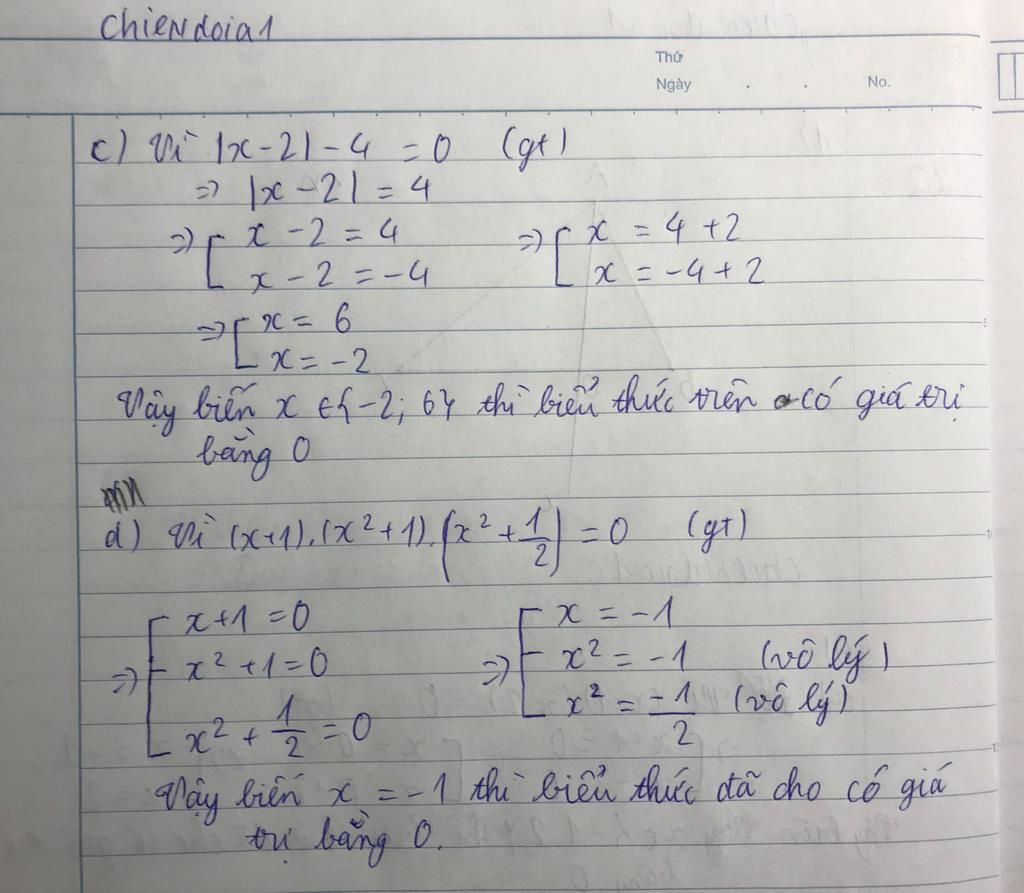 Chiendoia1
Thứ
Ngày . . No.
c) Vì |x-2| - 4 = 0 (gt)
=> |x-2| = 4
=> [ x - 2 = 4 => [ x = 4 + 2
x - 2 = -4 x = -4 + 2
=> [ x = 6
x = -2
Vậy biến x ∈ {-2; 6} thì biểu thức trên có giá trị
bằng 0
d) Vì (x+1).(x²+1).(x² + 1/2) = 0 (gt)
=> [ x+1 = 0 => [ x = -1
x² + 1 = 0 x² = -1 (vô lý)
x² + 1/2 = 0 x² = -1/2 (vô lý)
Vậy biến x = -1 thì biểu thức đã cho có giá
trị bằng 0.